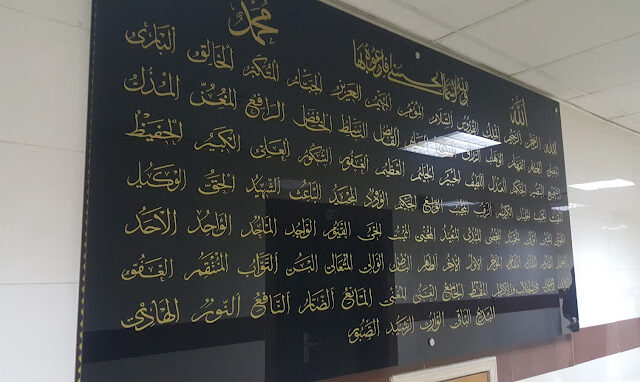 محمد
ولله الأسماء الحسنى فادعوه بها
الله
الرحمن الرحيم الملك القدوس السلام المؤمن المهيمن العزيز الجبار المتكبر الخالق البارئ
القهار الوهاب الرزاق القابض الباسط الخافض الرافع المعز المذل
البصير الحكم العدل اللطيف الخبير الحليم العظيم الغفور الشكور العلي الكبير الحفيظ
الجليل الكريم الرقيب المجيب الواسع الحكيم الودود المجيد الباعث الشهيد الحق الوكيل
الحميد المحصي المبدئ المعيد المحيي المميت الحي القيوم الواجد الماجد الواحد الأحد
المقدم المؤخر الأول الآخر الظاهر الباطن الوالي المتعال البر التواب المنتقم العفو
ذو الجلال والإكرام المقسط الجامع الغني المغني المانع الضار النافع النور الهادي
البديع الباقي الوارث الرشيد الصبور